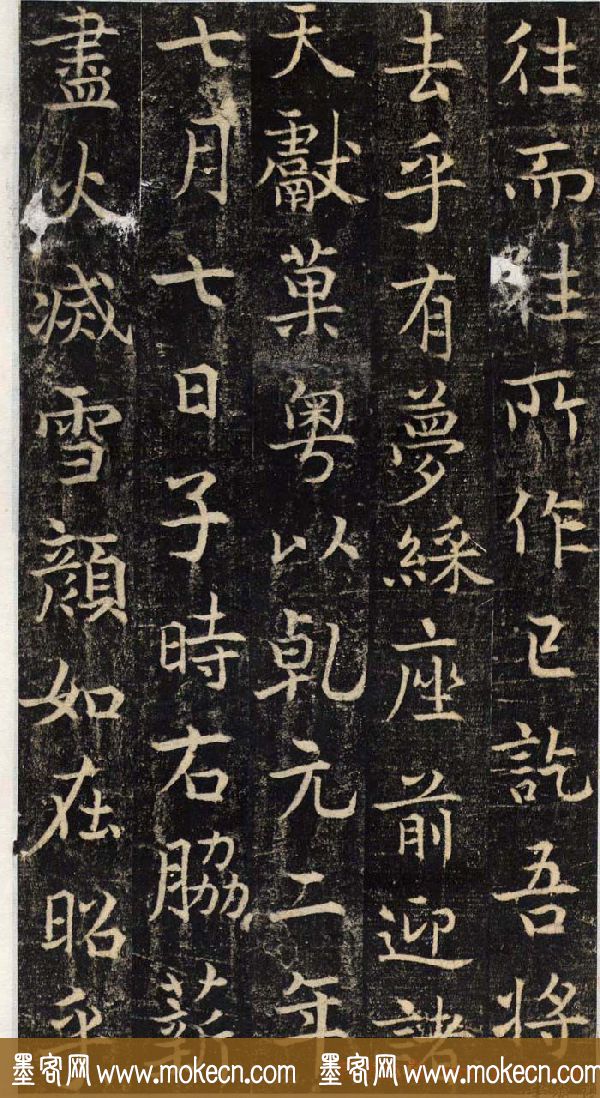 往而所作已訖吾將
去乎有夢綵座前迎諸
天獻菓粤以乾元二年
七月七日子時右脇薪
盡火滅雪顔如在昭乎
墨客网 www.mokecn.com 墨客网 www.mokecn.com